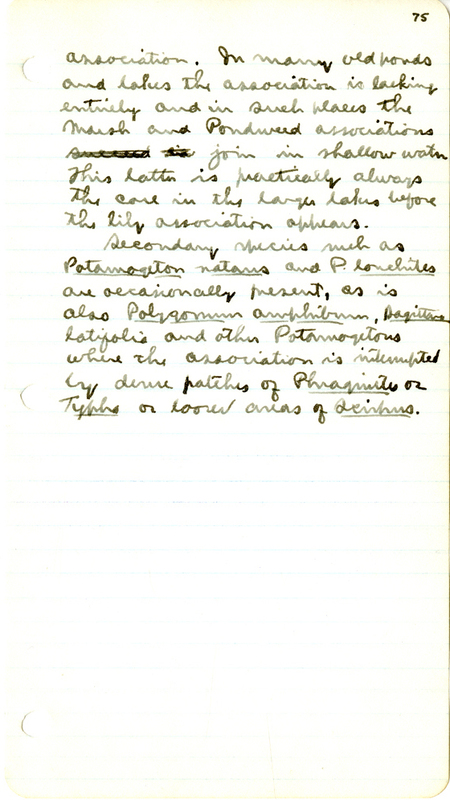 75
association. In many old ponds
and lakes the association is lacking
entirely and in such places the
Marsh and Pondweed associations
join in shallow water
This latter is practically always
the case in the larger lakes before
the lily association appears.
Secondary species such as
Potamogeton natans and P. lonchites
are occasionally present, as is
also Polygonum amphibium, Sagittaria
latifolia and other Potamogetons
where the association is interrupted
by dense patches of Phragmites or
Typha or looser areas of Scirpus.